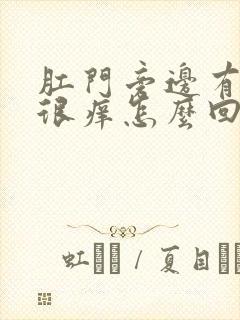 肛門旁邊有
很痒怎麼回
虹 / 夏目